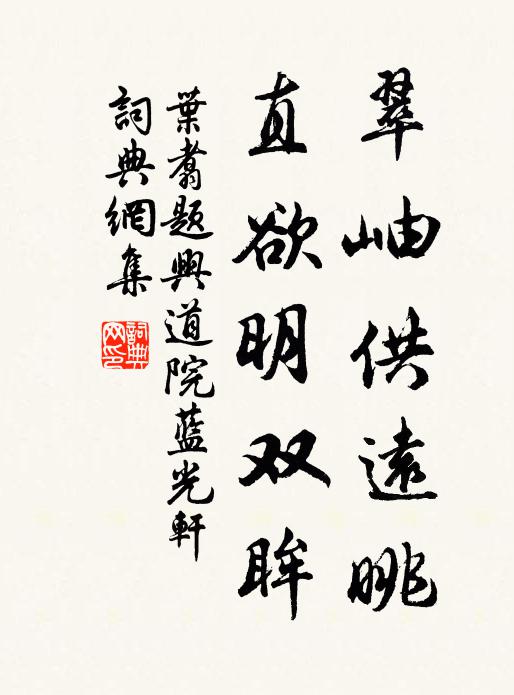 翠岫供遠眺
直欲明双眸
葉翥題興道院藍光軒
詞典網集
詞典網印